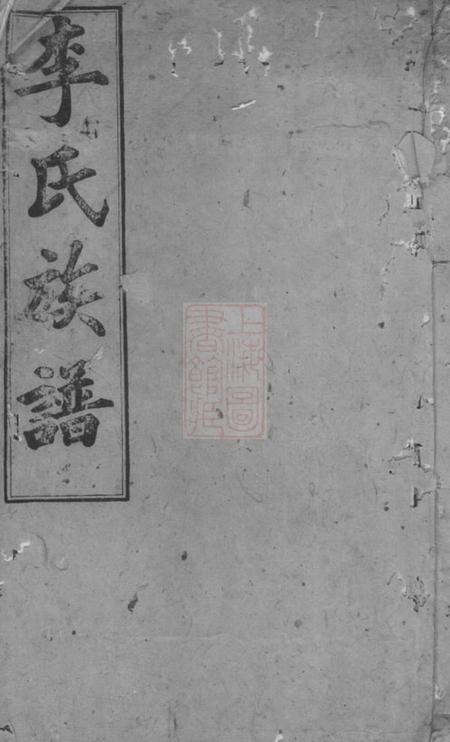 李氏族譜
上海圖書館藏